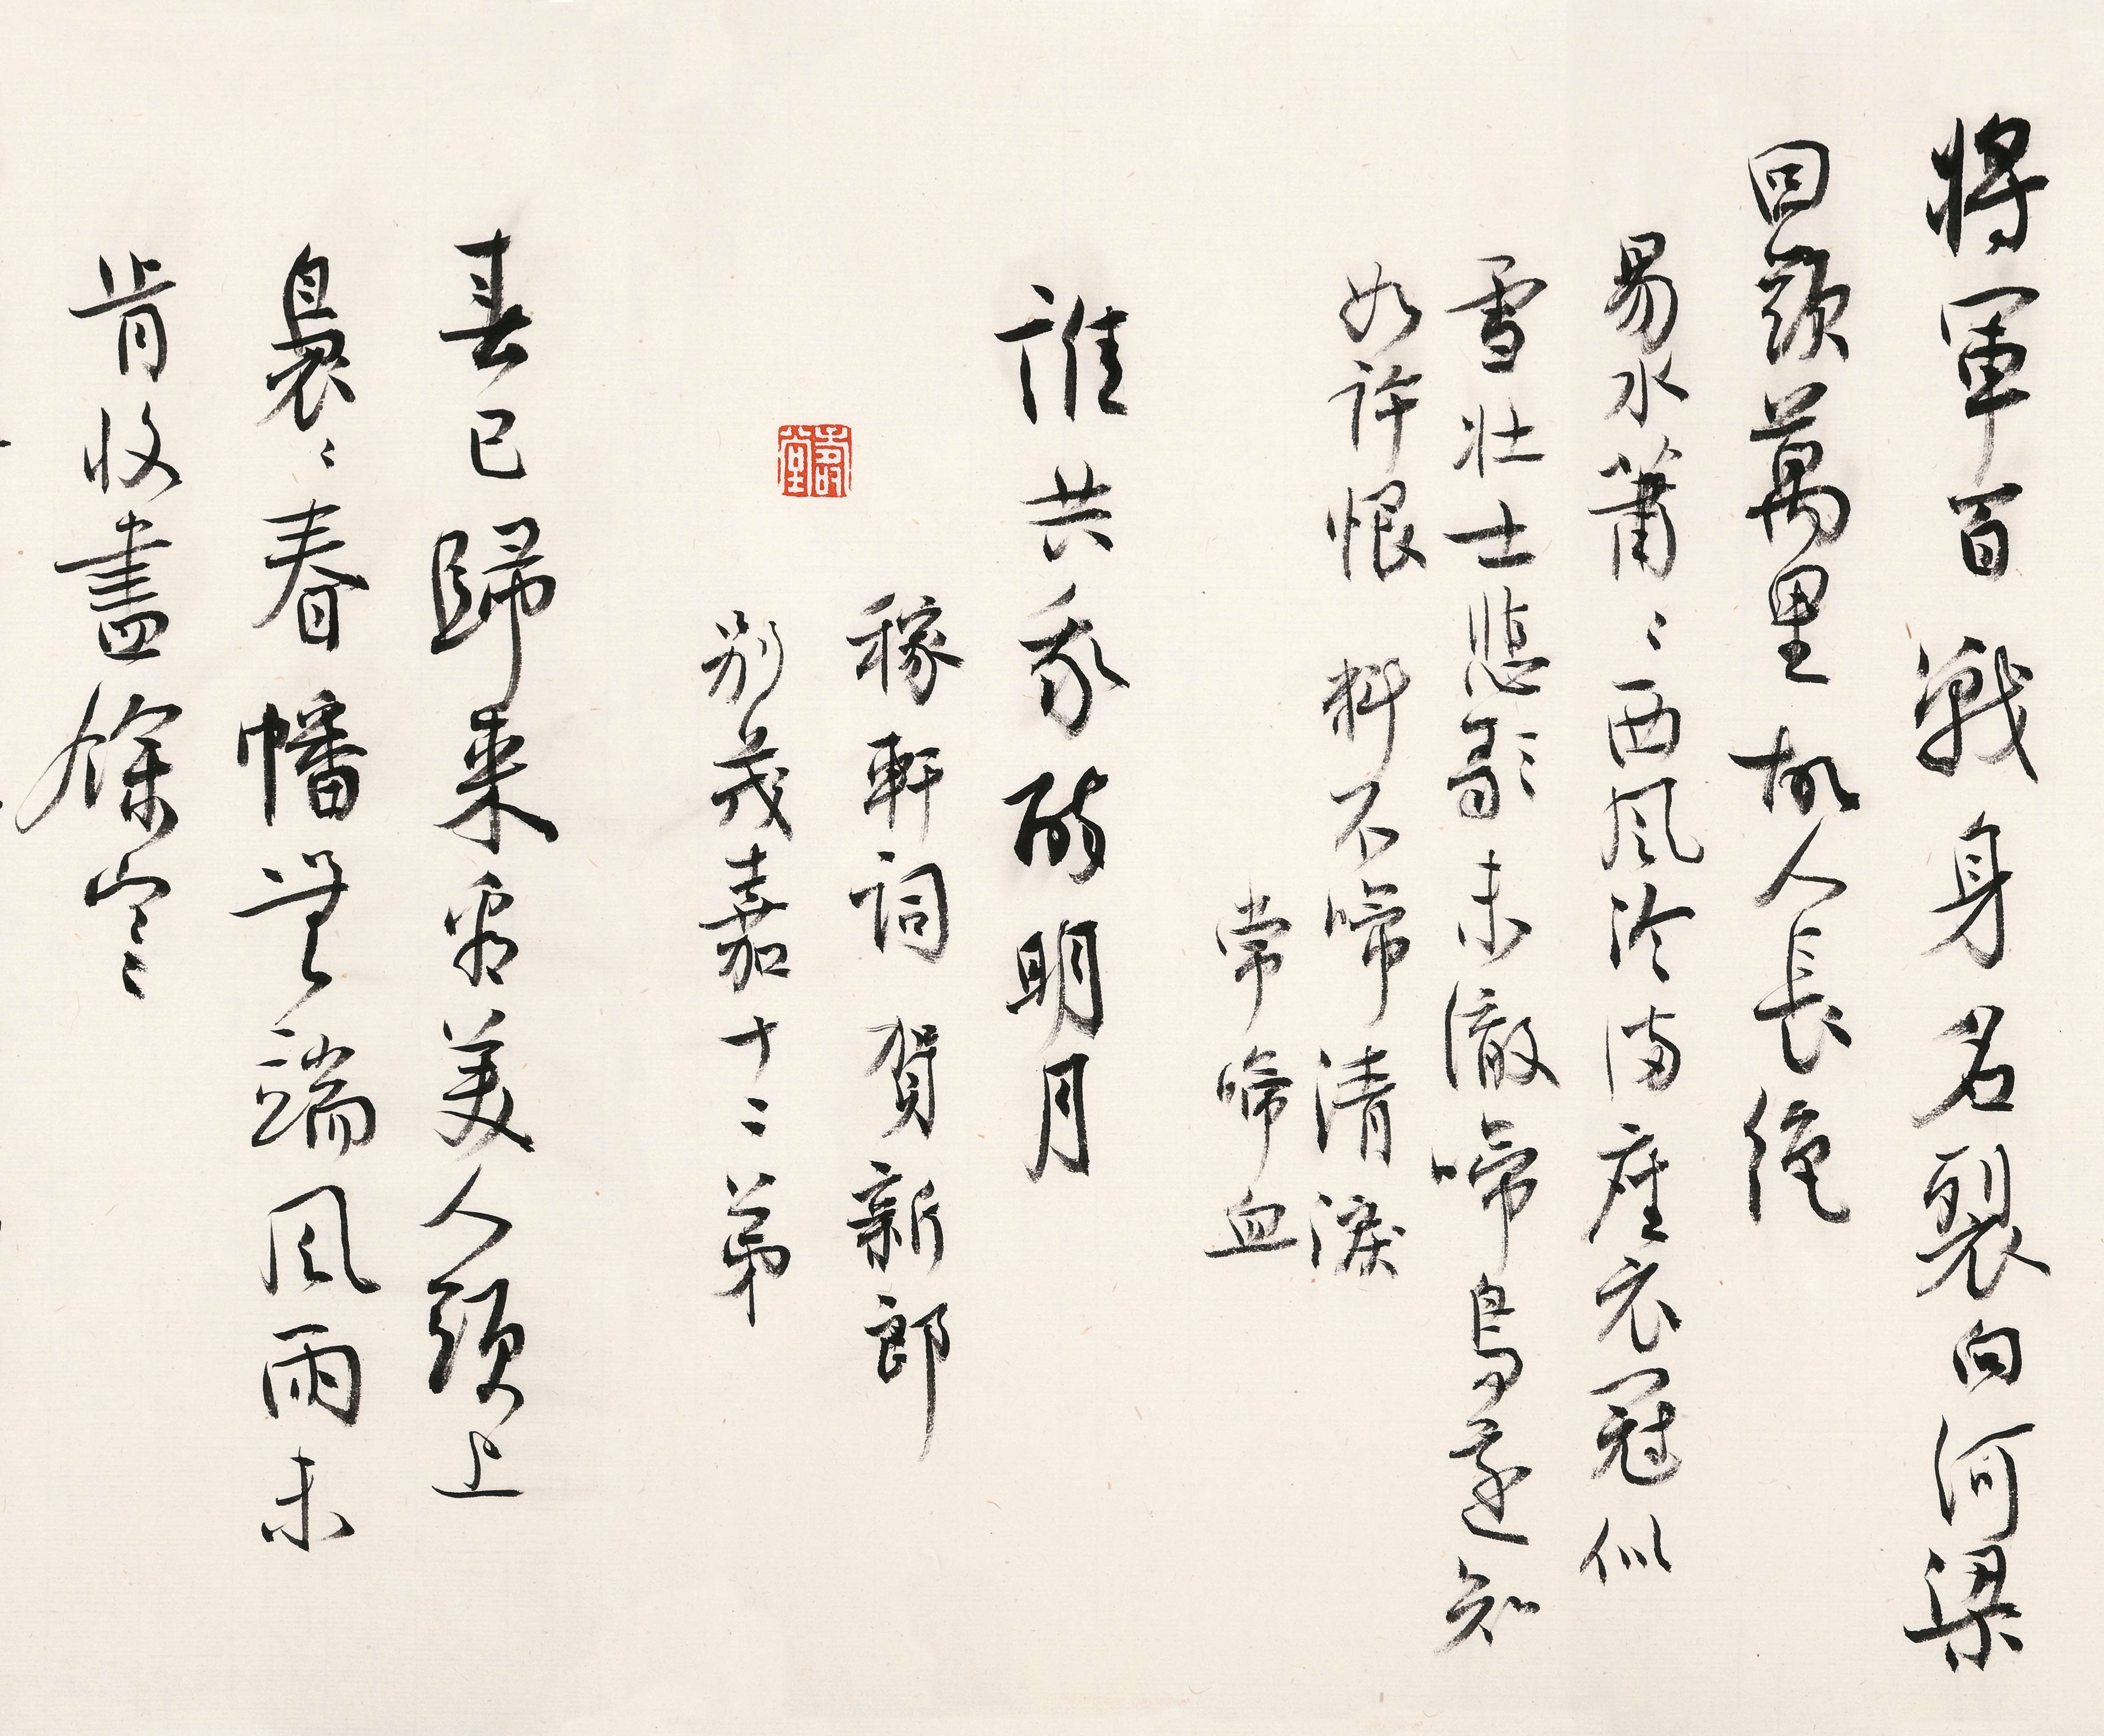 將軍百戰身名裂向河梁
回頭萬里故人長絕
易水蕭〻西風冷滿座衣冠似
雪壯士悲歌未徹啼鳥還知
如許恨料不啼清淚
常啼血
誰共我醉明月
稼軒詞賀新郎
壽堂
別茂嘉十二弟
春已歸來看美人頭上
裊〻春幡無端風雨未
肯收盡餘寒〻